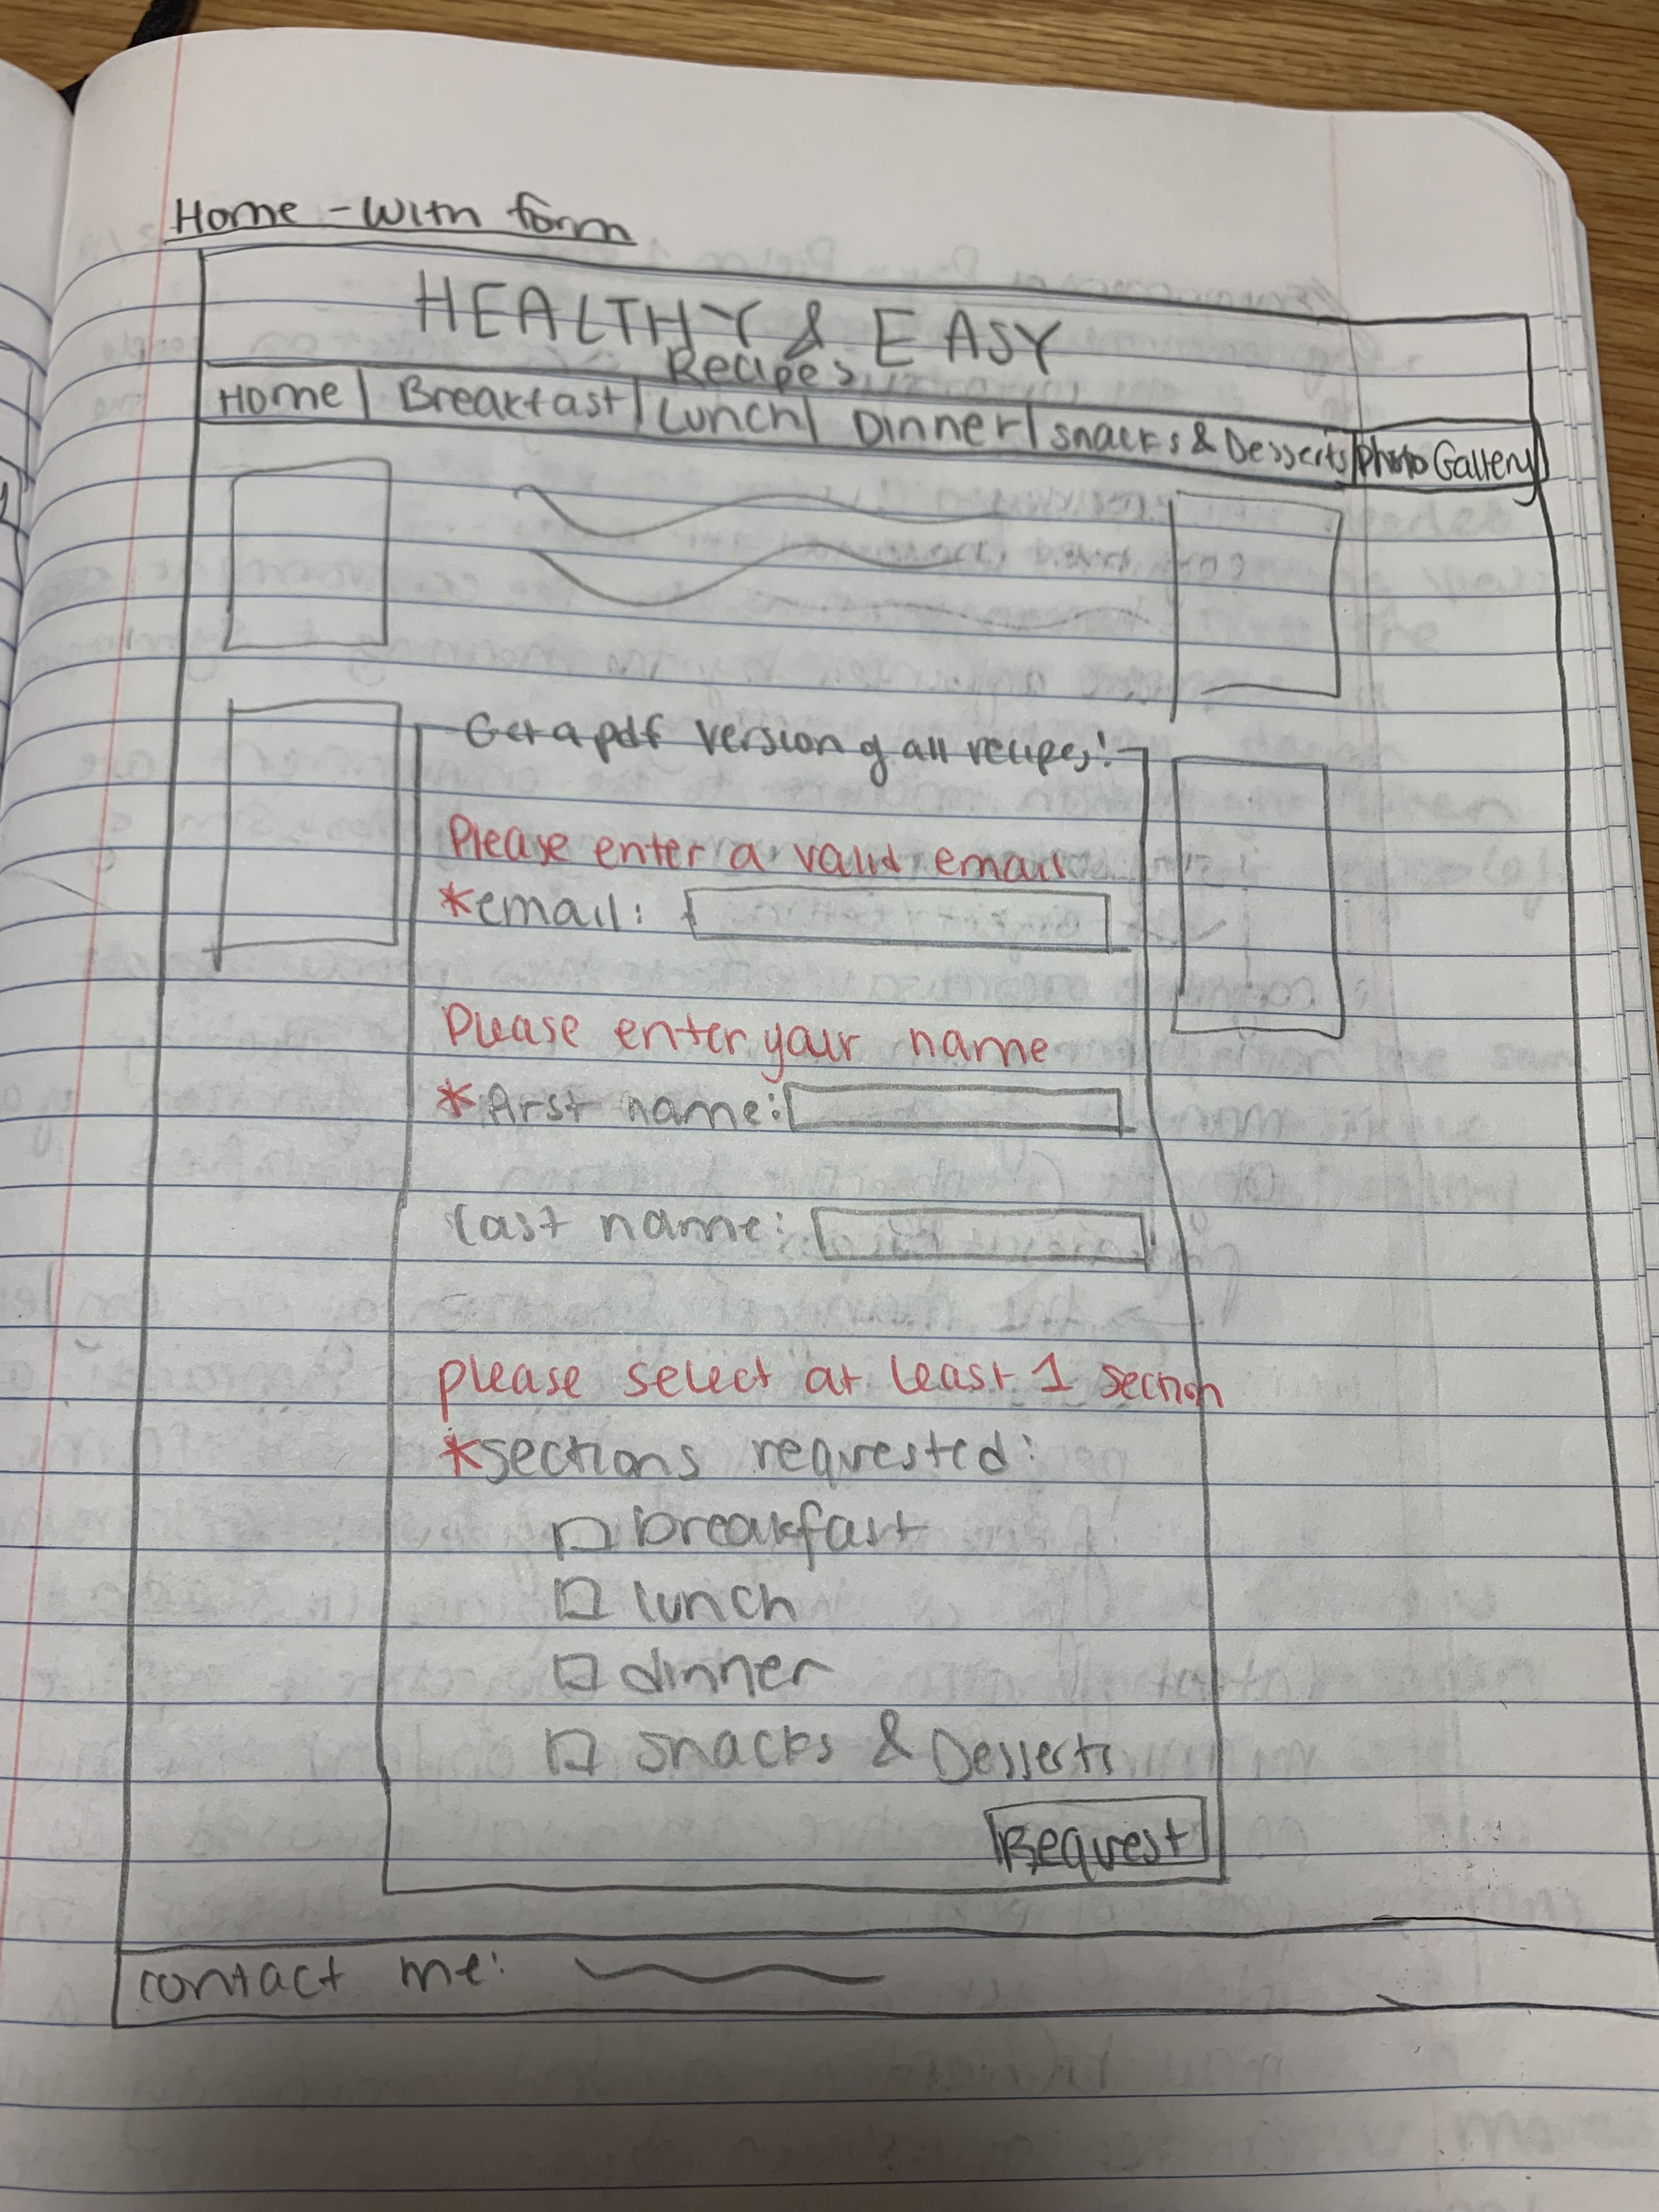 Home - With form
HEALTHY & EASY
Recipes
Home | Breakfast | Lunch | Dinner | snacks & Desserts | Photo Gallery
Get a pdf version of all recipes!
Please enter a valid email
*email:
Please enter your name
*First name:
Last name:
please select at least 1 section
*sections requested:
breakfast
lunch
dinner
snacks & Desserts
Request
contact me: